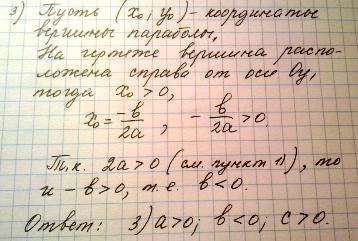 3) Пусть (x₀; y₀) - координаты
вершины параболы,
На чертеже вершина распо-
ложена справа от оси Oy,
тогда x₀ > 0,
x₀ = -b/2a , - b/2a > 0.
Т.к. 2a > 0 (см. пункт 1)), то
и - b > 0, т.е. b < 0.
Ответ: 3) a > 0; b < 0; c > 0.